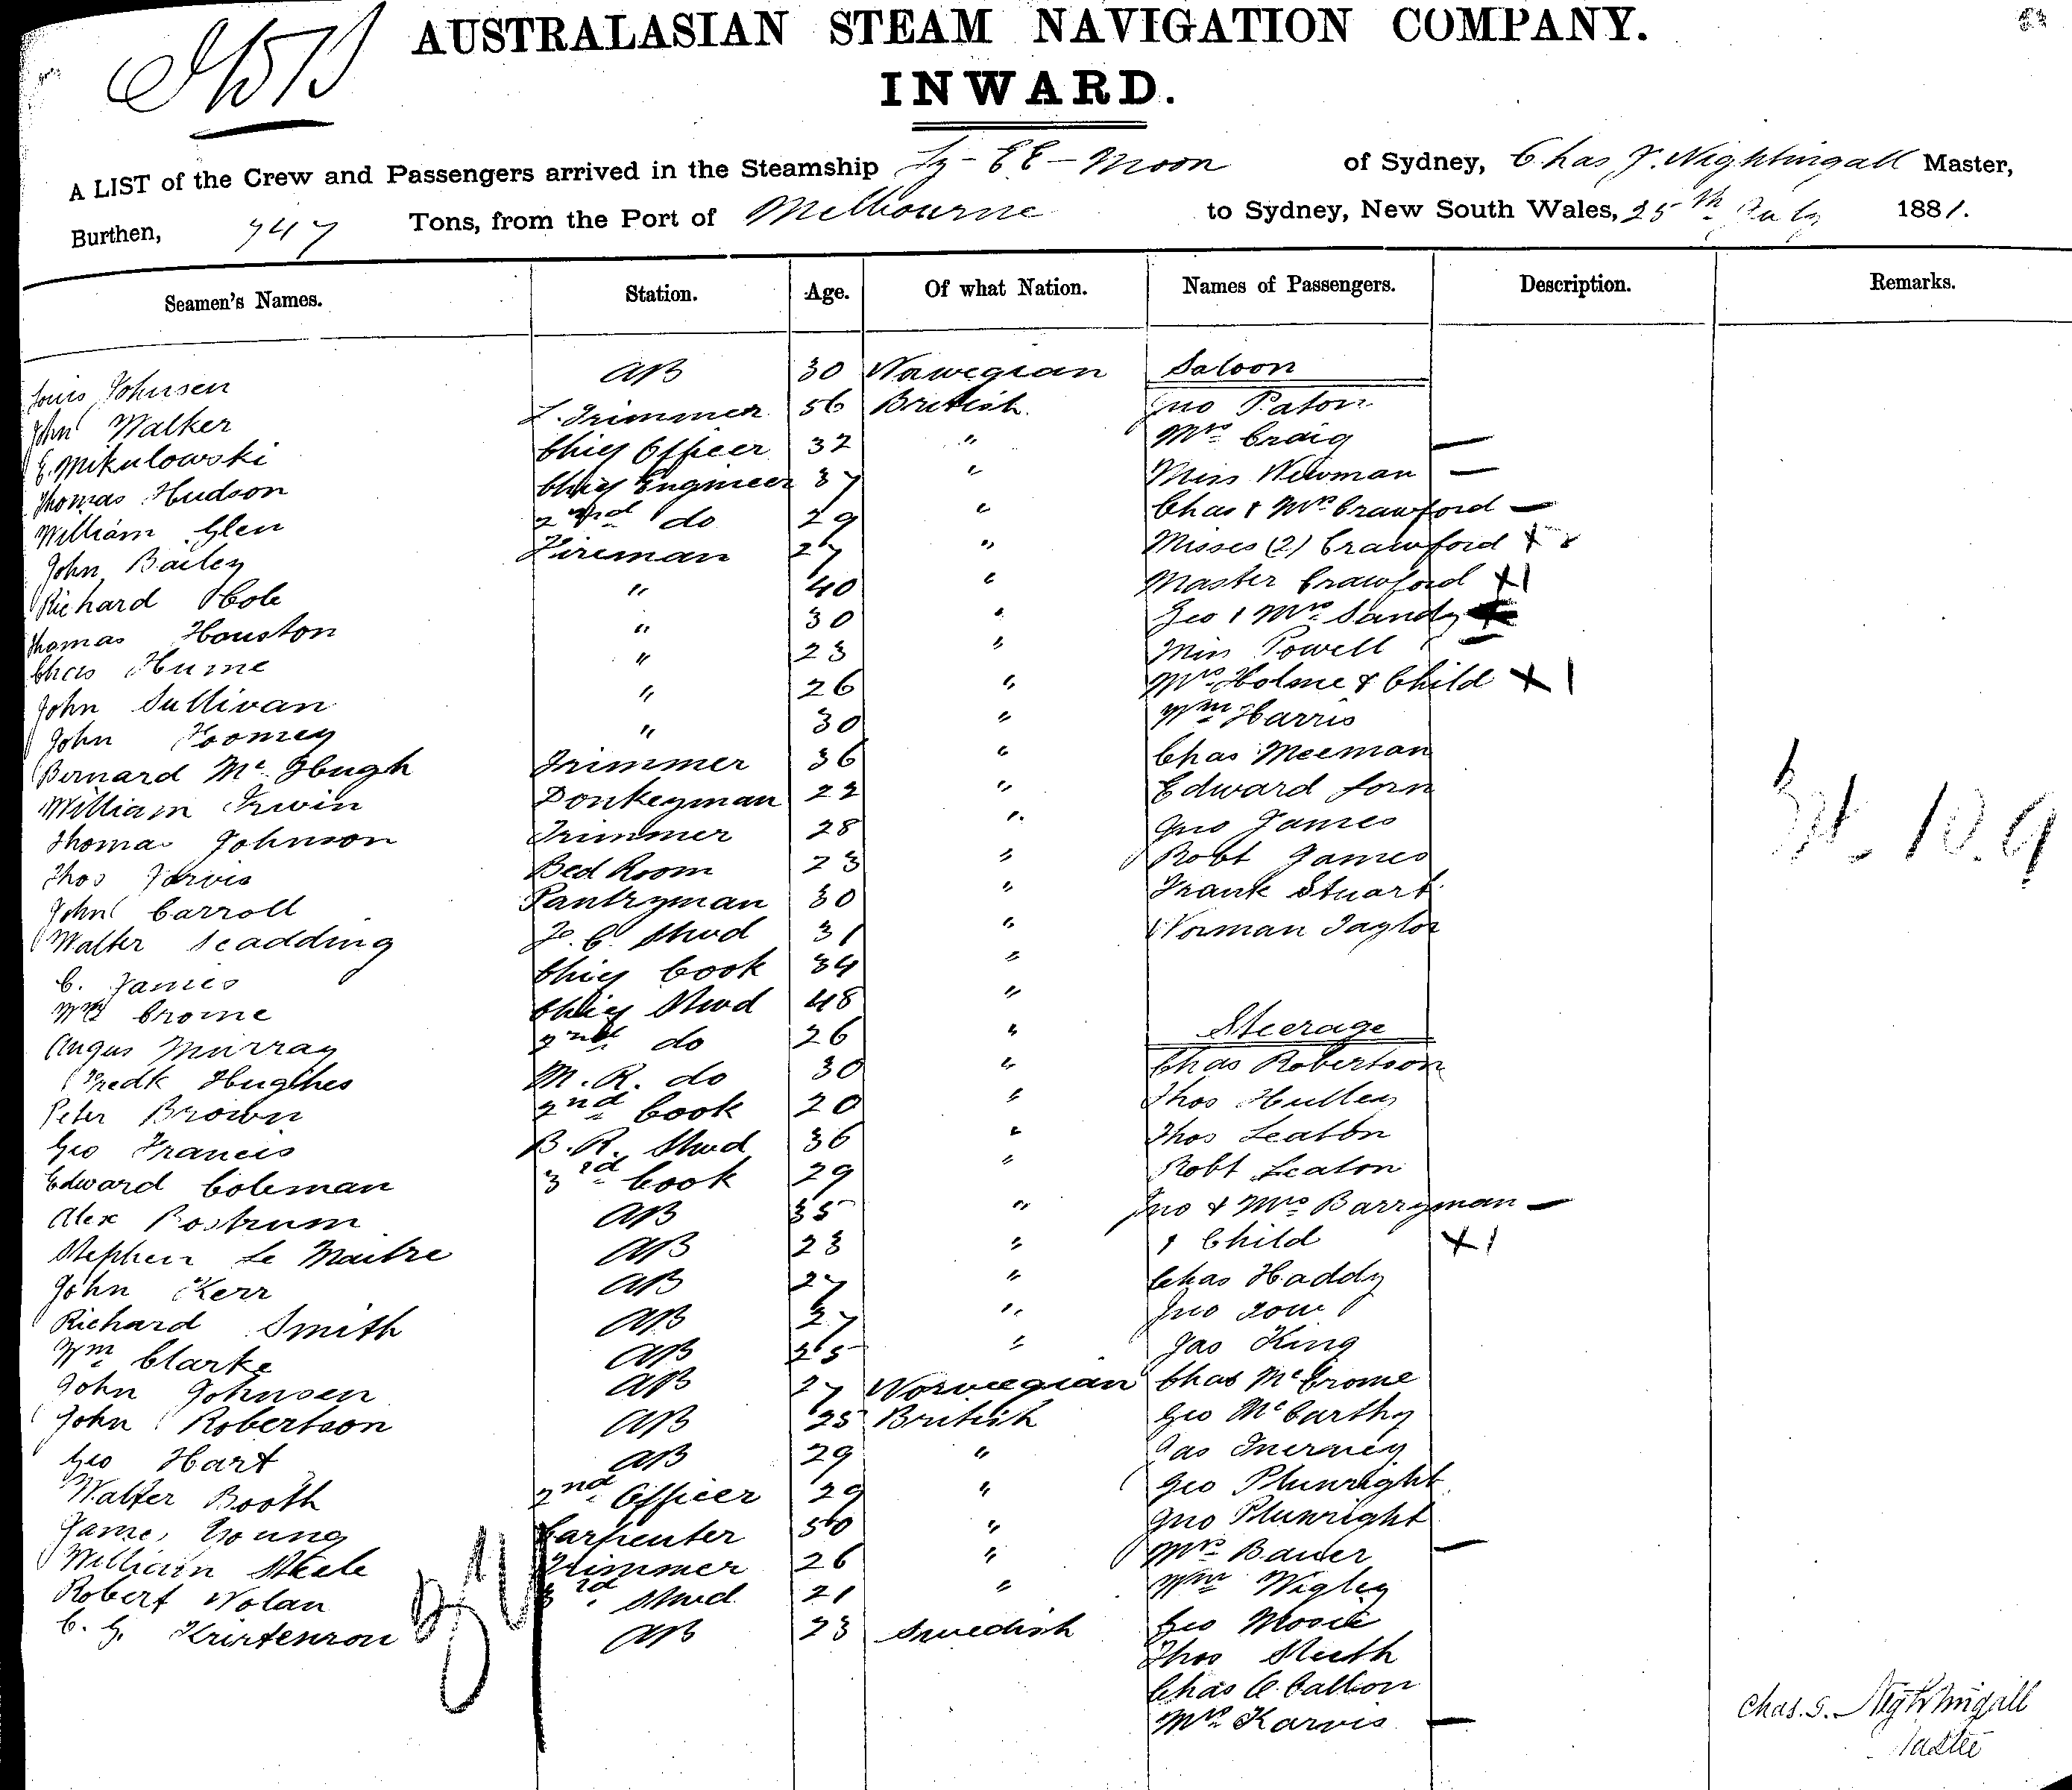 AUSTRALASIAN STEAM NAVIGATION COMPANY.
INWARD.
A LIST of the Crew and Passengers arrived in the Steamship Ly-EE-Moon of Sydney, Chas J. Nightingall Master,
Burthen, 747 Tons, from the Port of Melbourne to Sydney, New South Wales, 25th July 1881.
Seamen's Names. Station. Age. Of what Nation. Names of Passengers. Description. Remarks.
Louis Johnsen AB 30 Nawegian Saloon
John Walker L. Trimmer 56 British Jno Paton
E. Mikulowski Chief Officer 32 " Mrs Craig —
Thomas Hudson Chief Engineer 37 " Miss Newman —
William Glen 2nd do 29 " Chas & Mrs Crawford —
John Bailey Fireman 27 " Misses (2) Crawford X
Richard Cole " 40 " Master Crawford X1
Thomas Houston " 30 " Geo & Mrs Sandy
Chas Hume " 23 " Miss Powell —
John Sullivan " 26 " Mrs Holme & Child X 1
John Toomey " 30 " Wm Harris
Bernard Mc Hugh Trimmer 36 " Chas Meeman
William Irwin Donkeyman 22 " Edward
Thomas Johnson Trimmer 28 " Jno James
Thos Jarvis Bed Room 23 " Robt James
John Carroll Pantryman 30 " Frank Stuart
Walter Scadding F. C. Stwd 31 " Norman Taylor
C. James Chief Cook 34 "
Wm Crome Chief Stwd 48 "
Angus Murray 2nd do 26 " Steerage
Fredk Hughes M. R. do 30 " Chas Robertson
Peter Brown 2nd Cook 20 " Thos Hulley
Geo Francis B. R. Stwd 36 " Thos Leaton
Edward Coleman 3rd Cook 29 " Robt Leaton
Alex Bostrum AB 35 " Jno & Mrs Barryman —
Stephen Le Maitre AB 23 " 1 Child X1
John Kerr AB 27 " Chas Haddy
Richard Smith AB 27 " Jno
Wm Clarke AB 25 " Jas King
John Johnsen AB 27 Norwegian Chas McCrome
John Robertson AB 25 British Geo McCarthy
Geo Hart AB 29 " Jas Inerney
Walter Booth 2nd Officer 29 " Geo Plunright
James Young Carpenter 50 " Jno Plunright
William Steele Trimmer 26 " Mrs Bauer —
Robert Nolan 3rd Stwd 21 " Wm Wigley
C. G. Kristenson AB 23 Swedish Geo Moore
Thos
Chas
Mrs Karvis —
Chas. J. Nightingall
Master